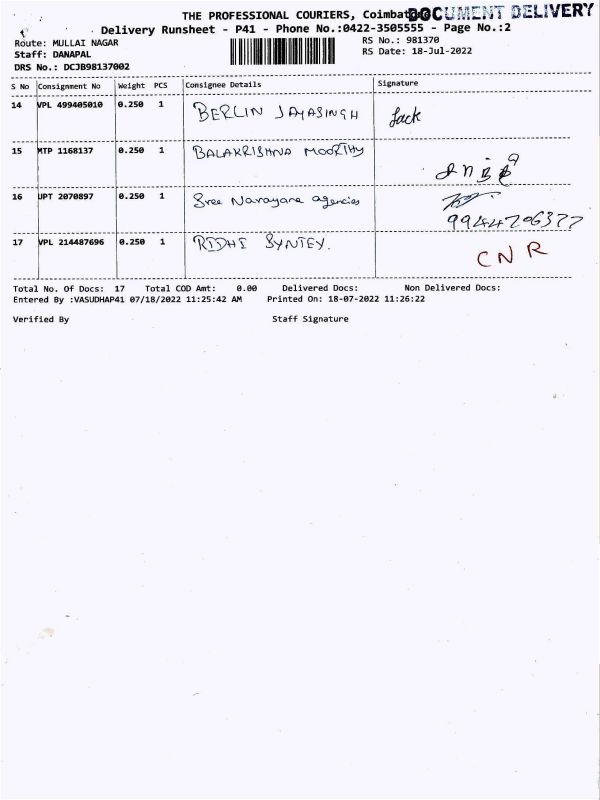 THE PROFESSIONAL COURIERS, Coimbat
DOCUMENT DELIVERY
Delivery Runsheet - P41 - Phone No.:0422-3505555 - Page No.:2
Route: MULLAI NAGAR
RS No.: 981370
Staff: DANAPAL
RS Date: 18-Jul-2022
DRS No.: DCJB98137002
S No Consignment No Weight PCS Consignee Details Signature
14 VPL 499405010 0.250 1 BERLIN JAYASINGH Jack
15 MTP 1168137 0.250 1 BALAKRISHNA MOORTHY
16 UPT 2070897 0.250 1 Sree Narayana agencies
9944706377
17 VPL 214487696 0.250 1 RIDHI SYNTEX. CNR
Total No. Of Docs: 17 Total COD Amt: 0.00 Delivered Docs: Non Delivered Docs:
Entered By :VASUDHAP41 07/18/2022 11:25:42 AM Printed On: 18-07-2022 11:26:22
Verified By Staff Signature